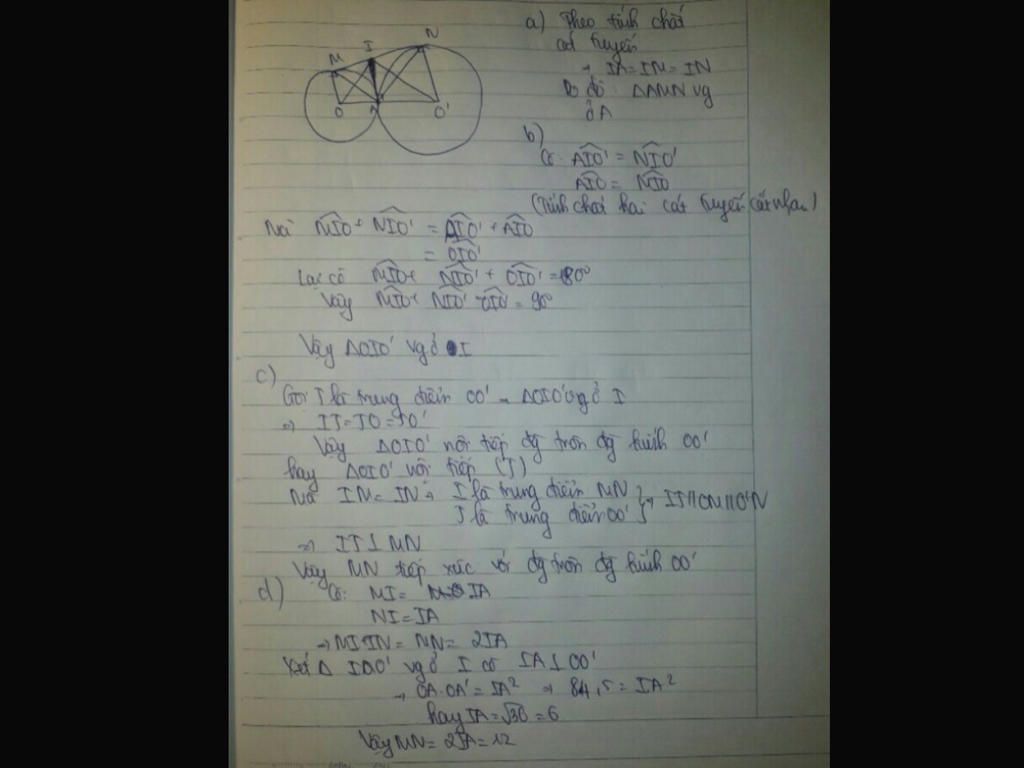 M
I
N
O
A
O'
a) Theo tính chất
cát tuyến
→ IA = IM = IN
Do đó ΔAMN vg
ở A
b)
Có AIO' = NIO'
AIO = MIO
(Tính chất hai cát tuyến cắt nhau)
Mà MIO + NIO' = AIO' + AIO
= OIO'
Lại có MIO + NIO' + OIO' = 180°
Vậy MIO + NIO' = OIO' = 90°
Vậy ΔOIO' vg ở I
c)
Gọi J là trung điểm OO' → ΔOIO' vg ở I
⇒ IJ = JO = JO'
Vậy ΔOIO' nội tiếp đg tròn đg kính OO'
hay ΔOIO' nội tiếp (J)
Mà IM = IN → I là trung điểm MN
J là trung điểm OO' } → IJ // OM // O'N
⇒ IJ ⊥ MN
Vậy MN tiếp xúc với đg tròn đg kính OO'
d) Có: MI = IA
NI = IA
→ MI + IN = MN = 2IA
Xét Δ IOO' vg ở I có IA ⊥ OO'
→ OA.OA' = IA² ⇒ 84,5 = IA²
hay IA = √36 = 6
Vậy MN = 2IA = 12